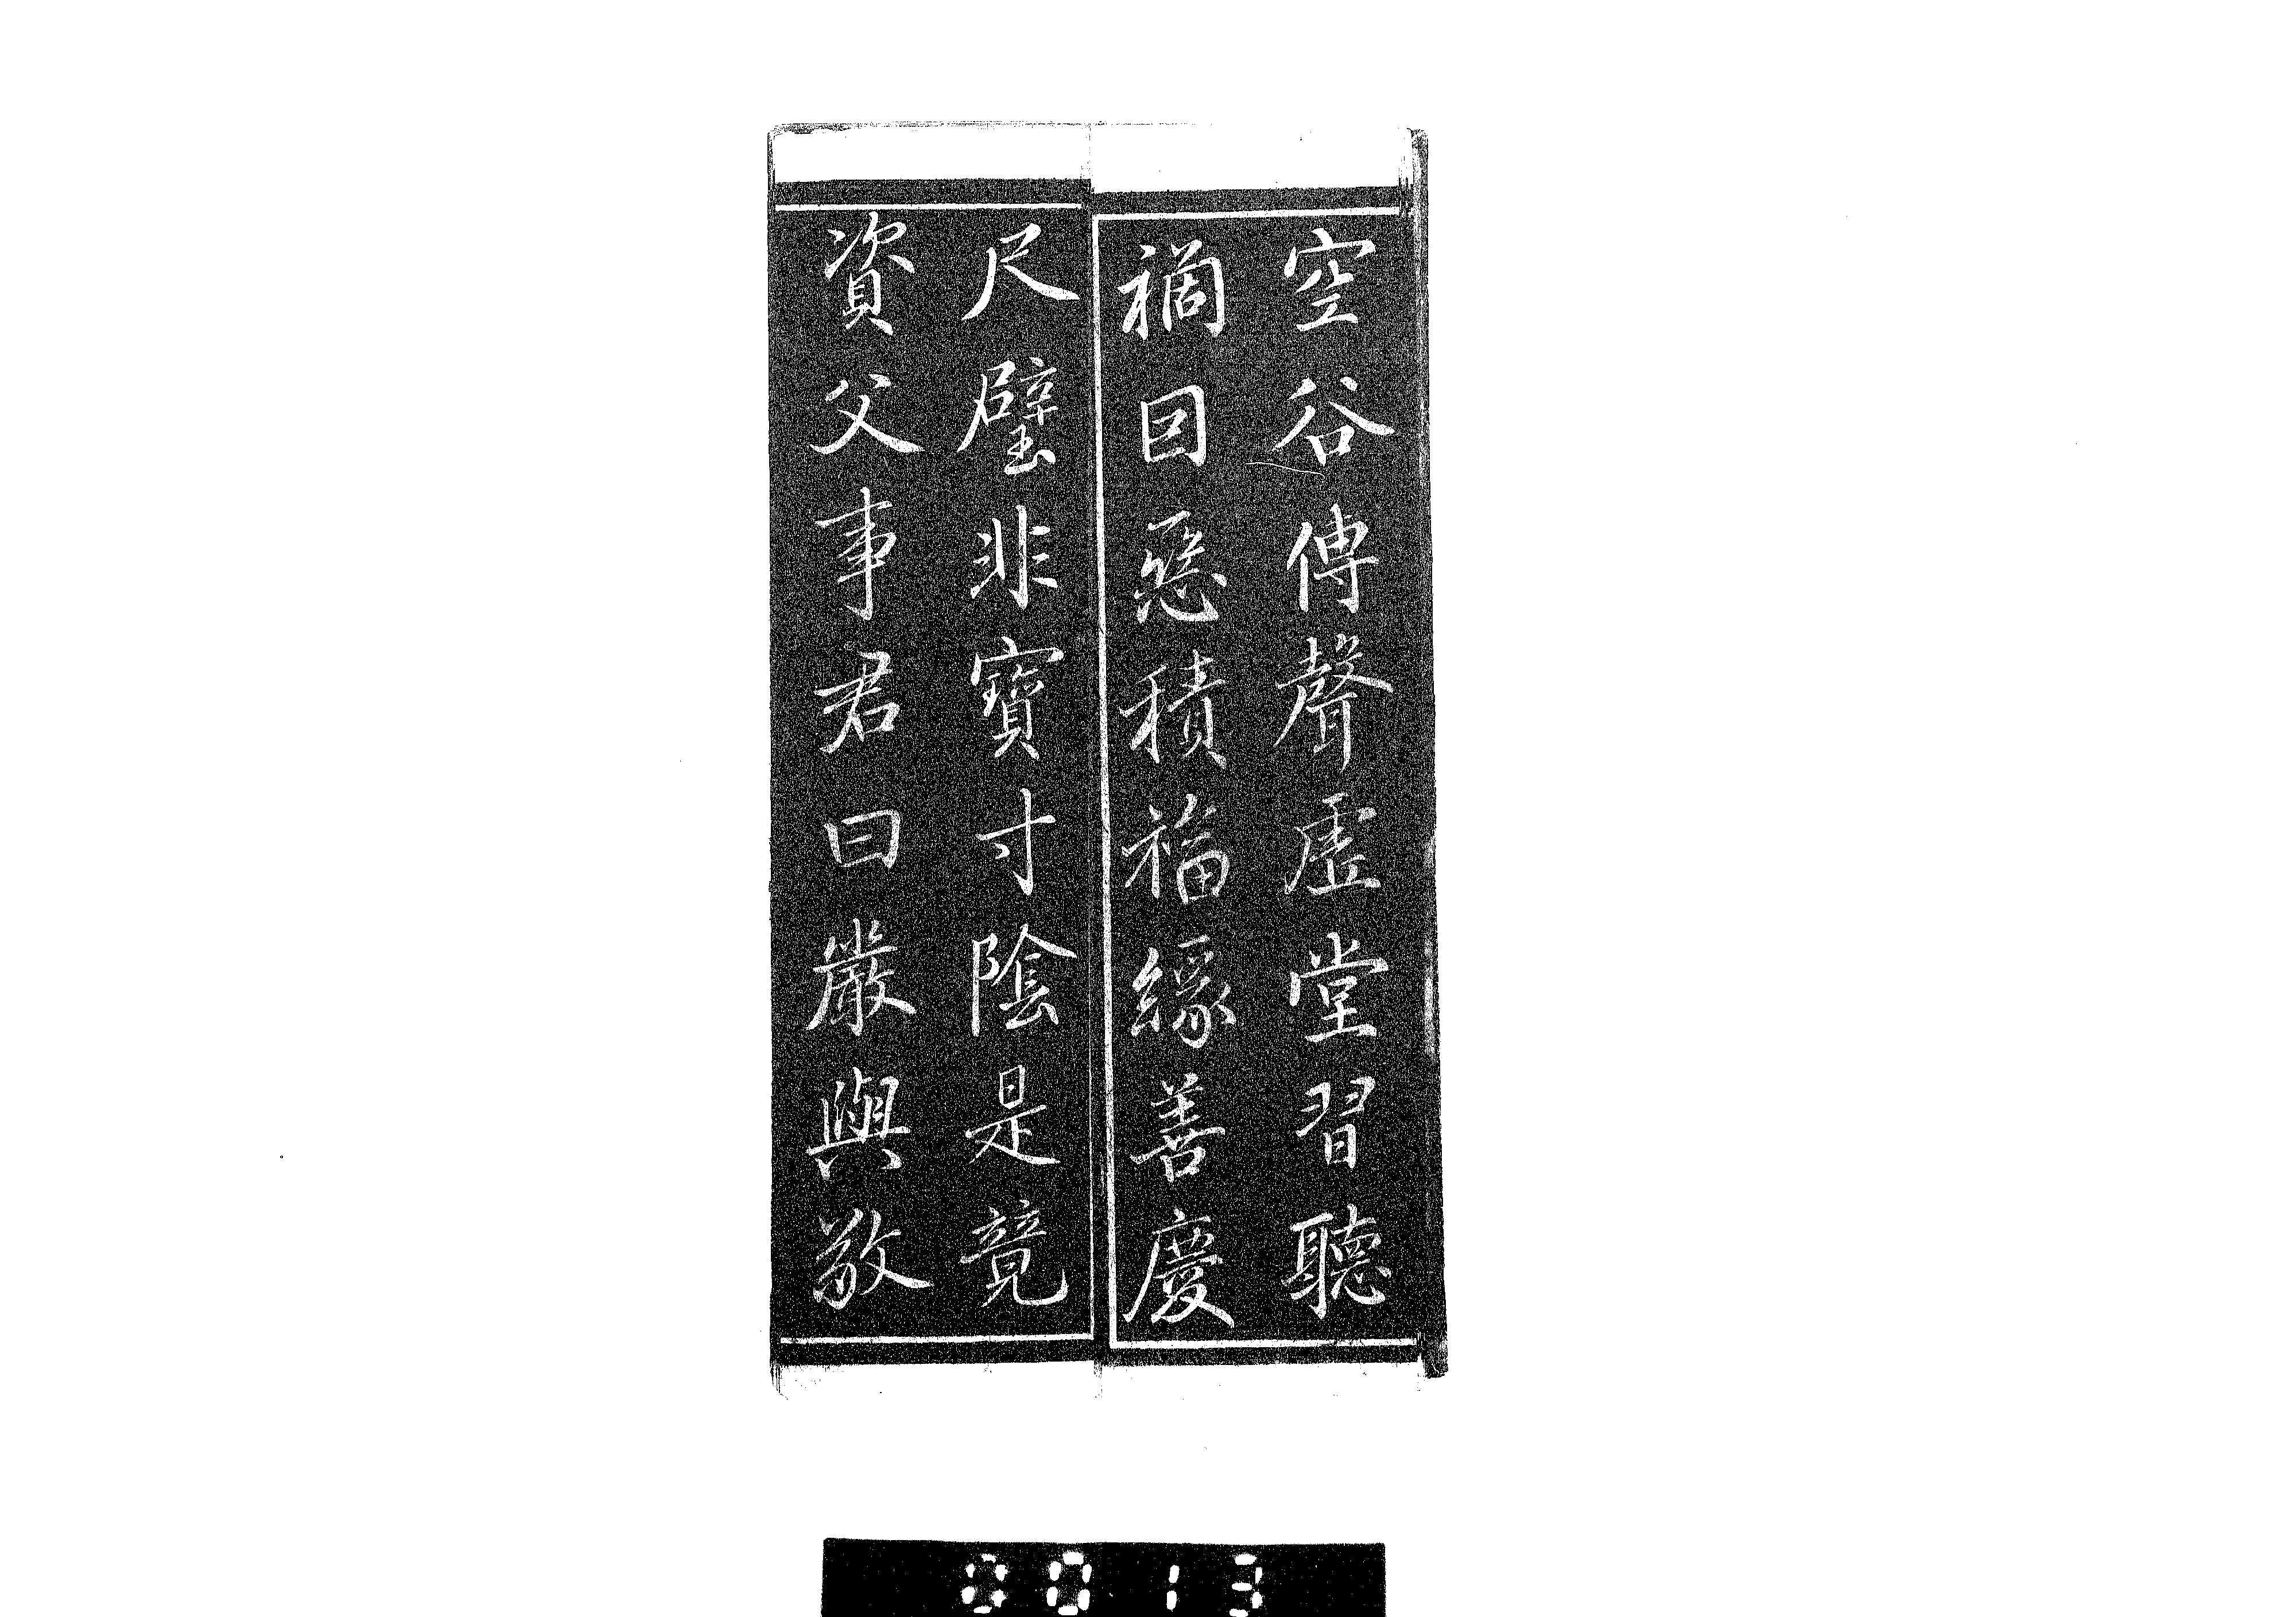 空谷傳聲虛堂習聽
禍因惡積福緣善慶
尺璧非寶寸陰是競
資父事君曰嚴與敬
0013